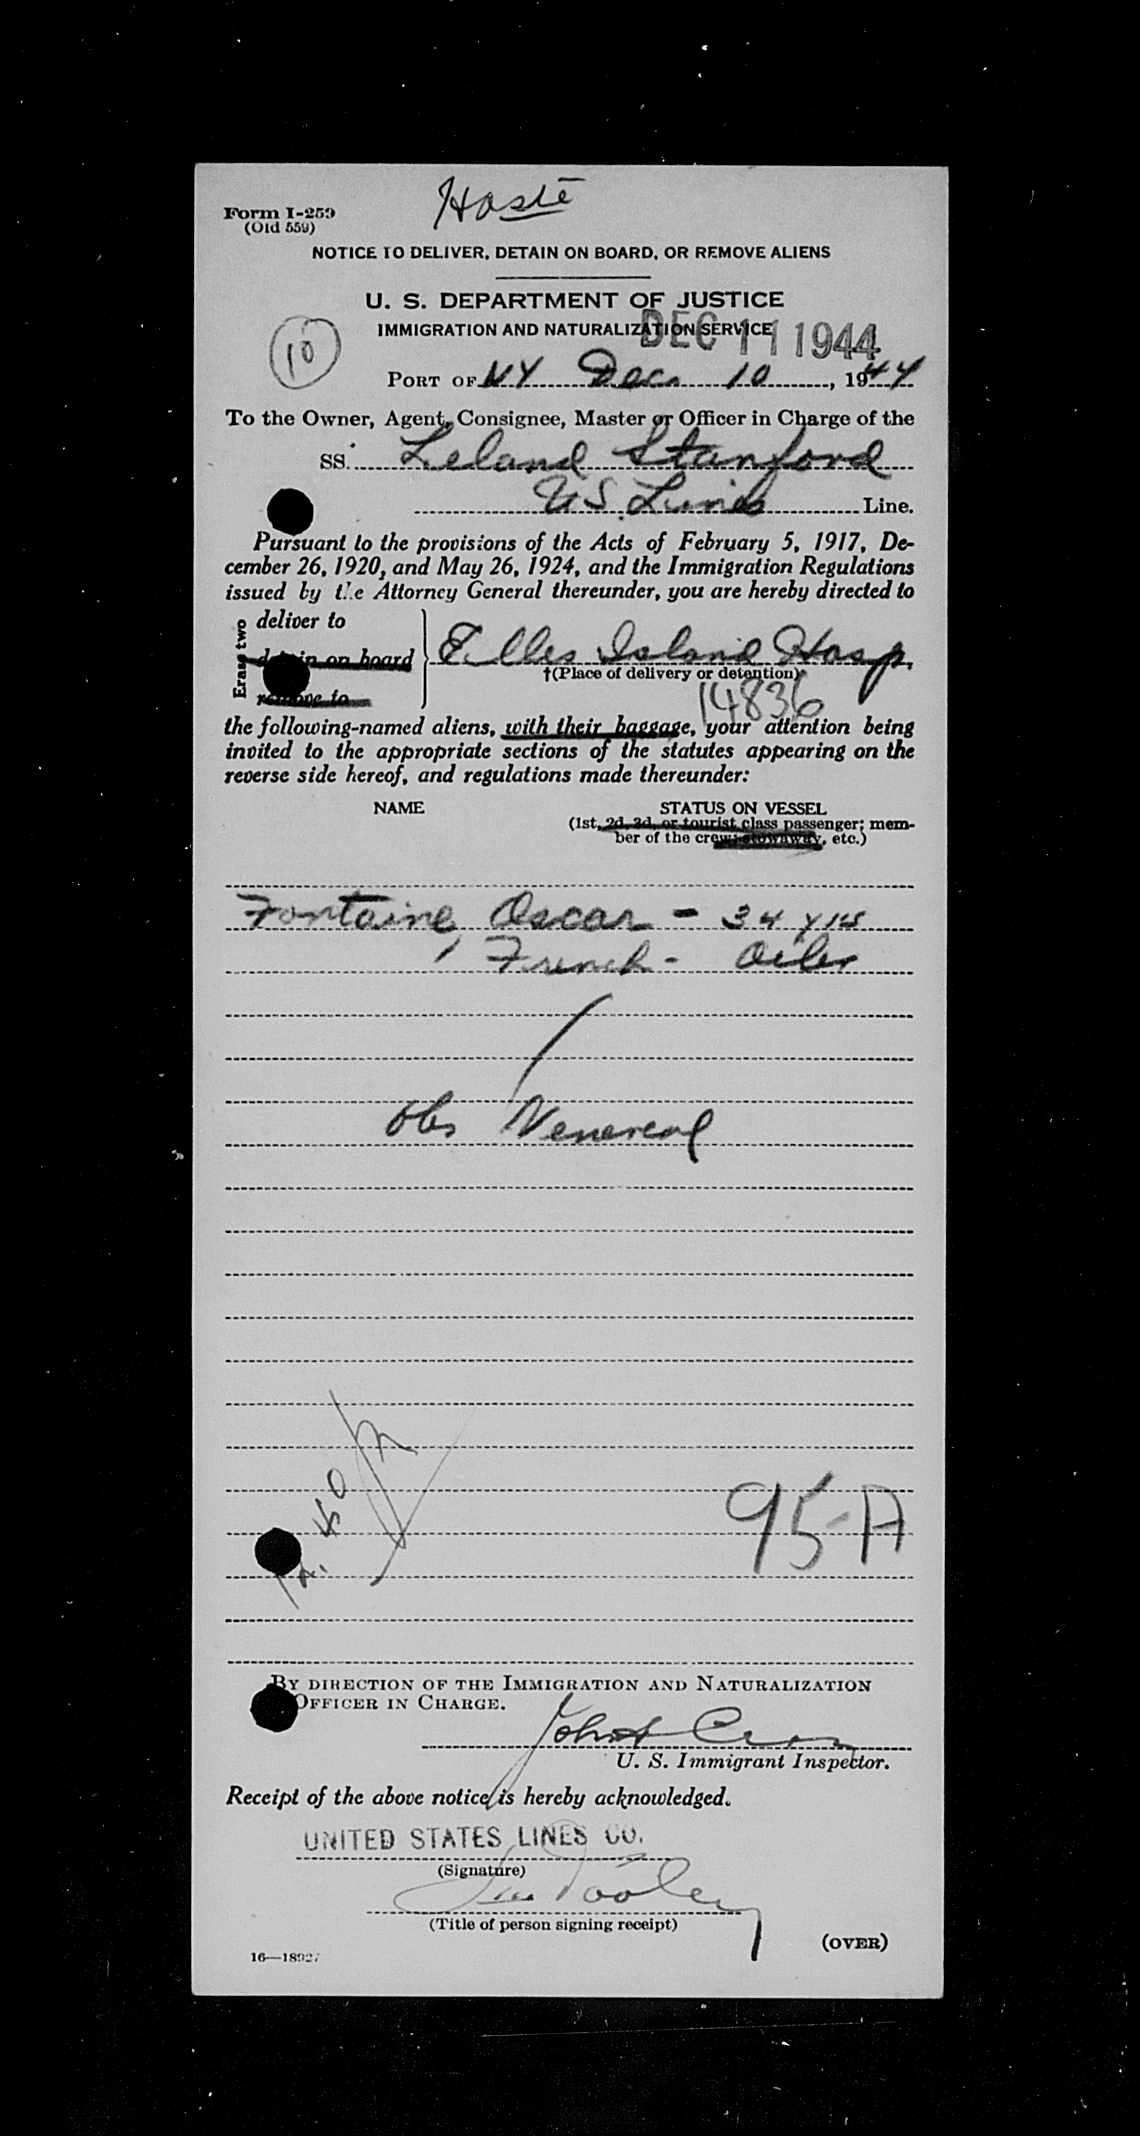 Haste
Form I-259
(Old 559)
NOTICE TO DELIVER, DETAIN ON BOARD, OR REMOVE ALIENS
U. S. DEPARTMENT OF JUSTICE
IMMIGRATION AND NATURALIZATION SERVICE
DEC 11 1944
10
PORT OF NY Dec. 10, 1944
To the Owner, Agent, Consignee, Master or Officer in Charge of the
SS. Leland Stanford
US Lines Line.
Pursuant to the provisions of the Acts of February 5, 1917, De-
cember 26, 1920, and May 26, 1924, and the Immigration Regulations
issued by the Attorney General thereunder, you are hereby directed to
Erase two
deliver to
detain on board
remove to
Ellis Island Hosp.
†(Place of delivery or detention)
14836
the following-named aliens, with their baggage, your attention being
invited to the appropriate sections of the statutes appearing on the
reverse side hereof, and regulations made thereunder:
NAME STATUS ON VESSEL
(1st, 2d, 3d, or tourist class passenger; mem-
ber of the crew, stowaway, etc.)
Fontaine, Oscar - 34 yrs
French - Oiler
Obs Venereal
95-A
BY DIRECTION OF THE IMMIGRATION AND NATURALIZATION
OFFICER IN CHARGE.
John
U. S. Immigrant Inspector.
Receipt of the above notice is hereby acknowledged.
UNITED STATES LINES CO.
(Signature)
(Title of person signing receipt)
(OVER)
16—18927